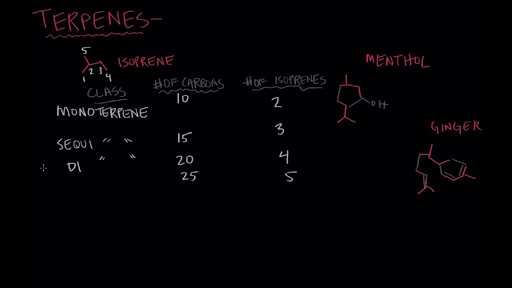 TERPENES-
5
ISOPRENE
1 2 3 4
MENTHOL
CLASS #OF CARBONS #OF ISOPRENES
MONOTERPENE 10 2
OH
SEQUI " " 15 3
GINGER
DI " " 20 4
25 5